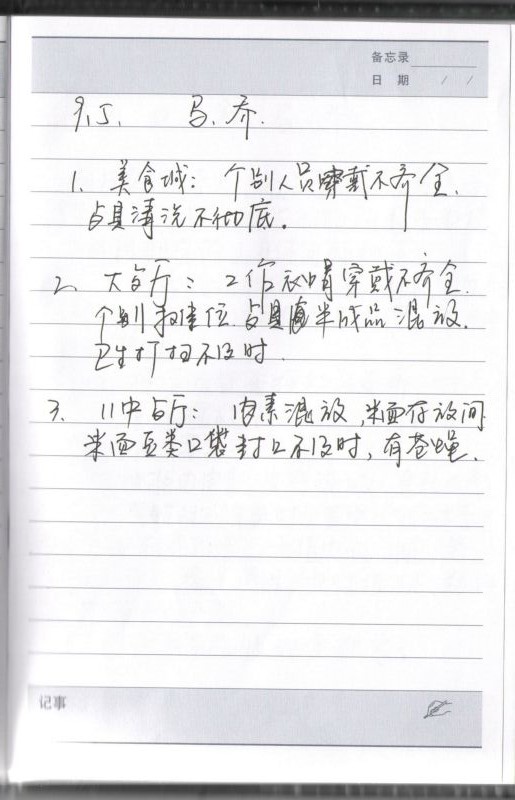 备忘录
日 期 / /
9.5. 马.乔.
1. 美食城：个别人员穿戴不齐全.
占具清洗不彻底。
2. 大占厅：工作衣帽穿戴不齐全.
个别 位. 占具 半成品混放.
卫生打扫不及时.
3. 川中占厅：肉素混放,米面存放间
米面豆类口袋封口不及时,有苍蝇.
记事